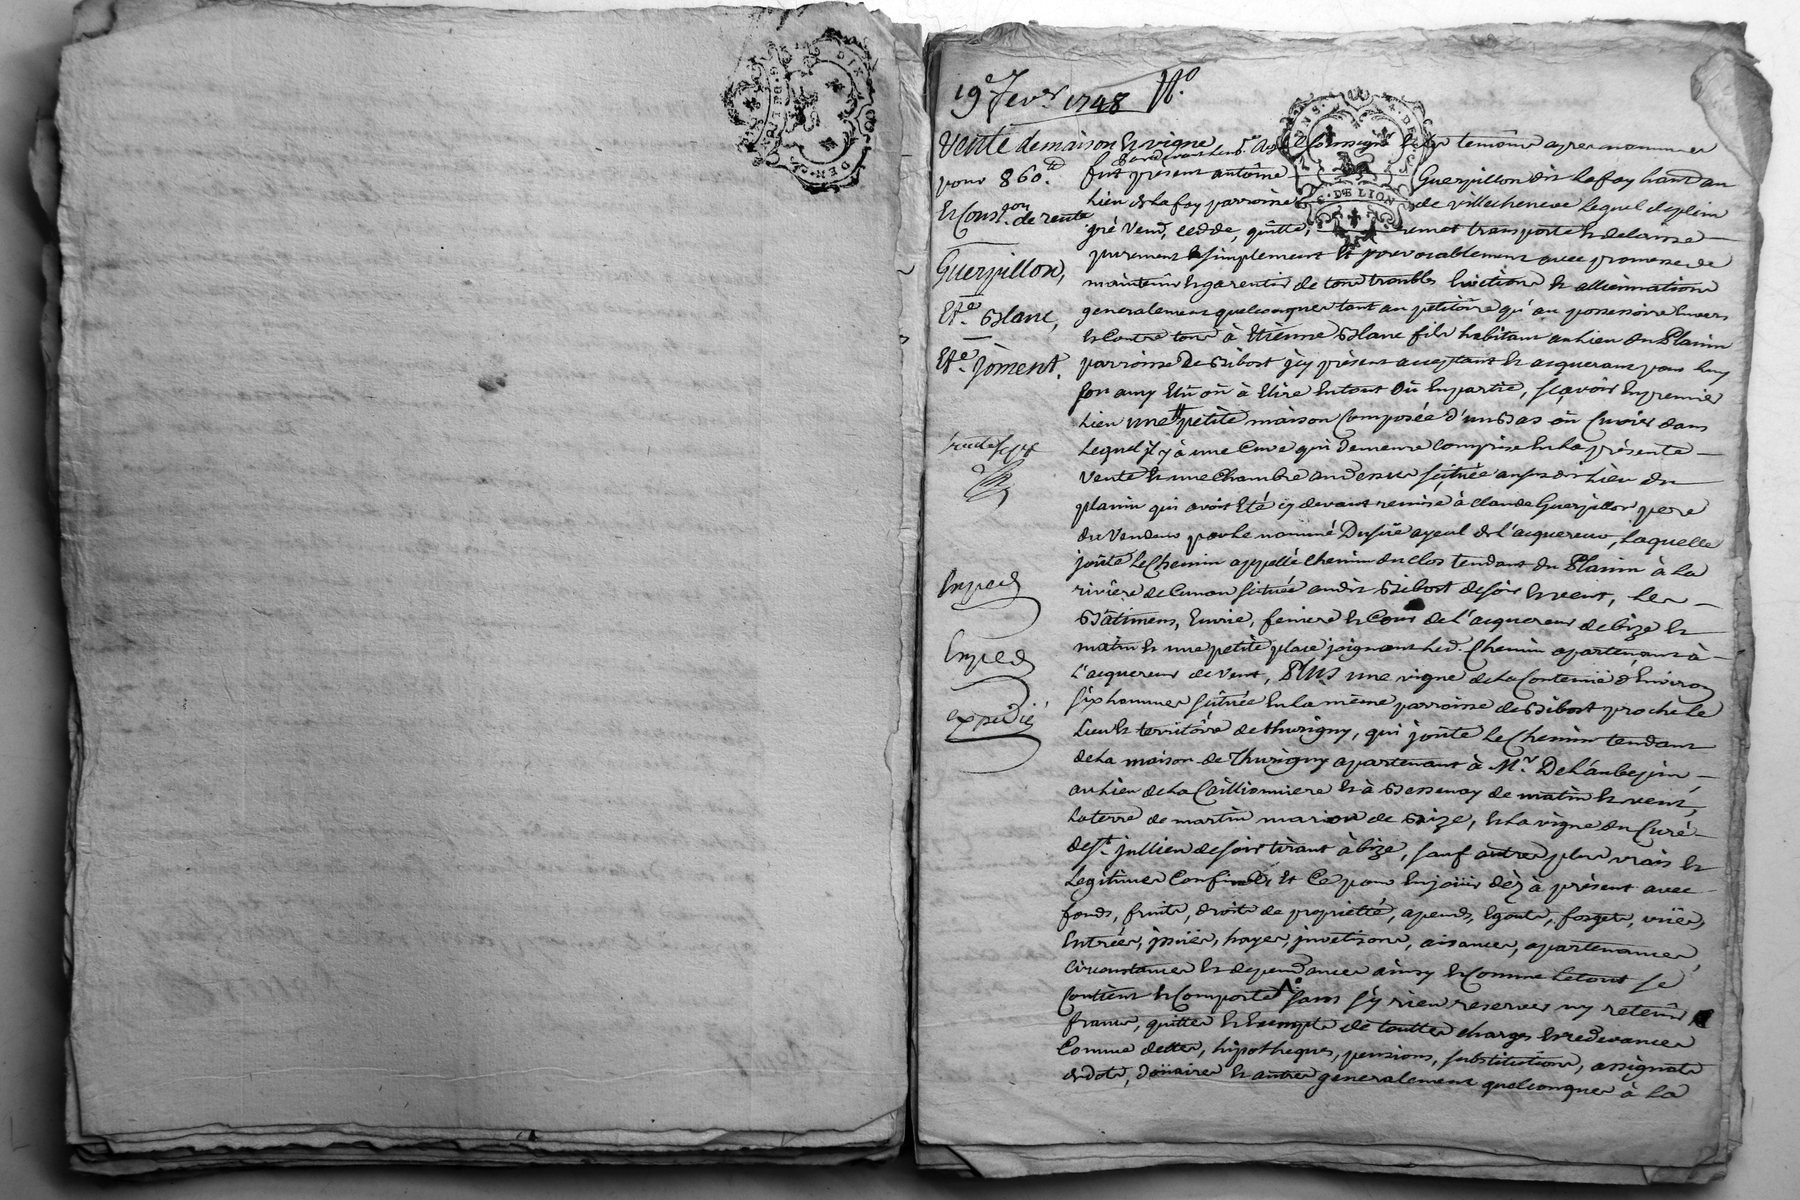 19e Fevr. 1748 No.
Vente de maison & vigne
pour 860.tt
& Const.on de rente
Guerpillon,
Et.e Blanc,
Et.e joment.
Exped
Exped
expedié
GEN. DE LION
Par devant le no.re Royal soussigné & les temoins apres nommes
fut présent antoine Guerpillon dit Lafay habt. au
Lieu de Lafay parroisse de villecheneve Lequel de plein
gré Vend, cedde, quitte, remet transporte & delaisse
purement & simplement & irrevocablement avec promesse de
maintenir & garentir de tous troubles Evictions & allienations
generalement quelconques tant au petitoire qu'au possessoire Envers
& Contre tous à Etienne Blanc fils habitant au Lieu du Planin
parroisse De Bibost icy présent acceptant & acquerant pour Luy
son amy Elû où à Elire En tout Où En partie, sçavoir En premier
Lieu une petite maison Composée d'un Bas où Cuvier dans
Lequel Il y à une Cuve qui Demeure comprise En La présente
Vente & une Chambre au dessus scituée au susdit Lieu du
planin qui avoit Eté cy devant remise à Claude Guerpillon pere
du Vendeur par Le nommé Dusire ayeul de L'acquereur, Laquelle
joute Le Chemin appellé Chemin du clos tendant du Planin à La
rivière de Conan scituée audit Bibost de soir & vent, Les
Bâtimens, Ecurie, feniere & Cour de L'acquereur de bize &
matin & une petite place joignant Led. Chemin apartenant à
L'acquereur de Vent, Plus une vigne de La Contenüe d'Environ
six hommes scituée En La même parroisse de Bibost proche Le
Lieu & territoire de thurigny, qui joute Le Chemin tendant
de La maison de Thurigny apartenant à Mr. De Laubepin
au Lieu de La Caillionniere & à Bessenay de matin & vent,
La terre de martin marion de Bize, & La vigne du Curé
de St. jullien de soir tirant à bize, sauf autres plus vrais &
Legitimes Confins Et Ce pour En joüir dèz à présent avec
fonds, fruits, droits de propriété, apends, Egouts, forgets, vües,
Entrées, issües, hayes, invetisons, aisances, apartenances,
Circonstances & dependances ainsy & Comme Le tout se
Contient & Comporte sans s'y rien reserver ny retenir
francs, quittes & Exempts de touttes charges & redevances
Comme dettes, hipotheques, pensions, substitutions, assignats
de dots, doüaires & autres generalement quelconques à La